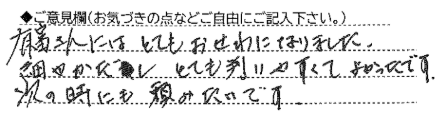 ◆ご意見欄(お気づきの点などご自由にご記入下さい。)
有島さんには とても おせわに なりました.
細やかだし とても 判りやすくて よかったです.
次の時にも 頼みたいです